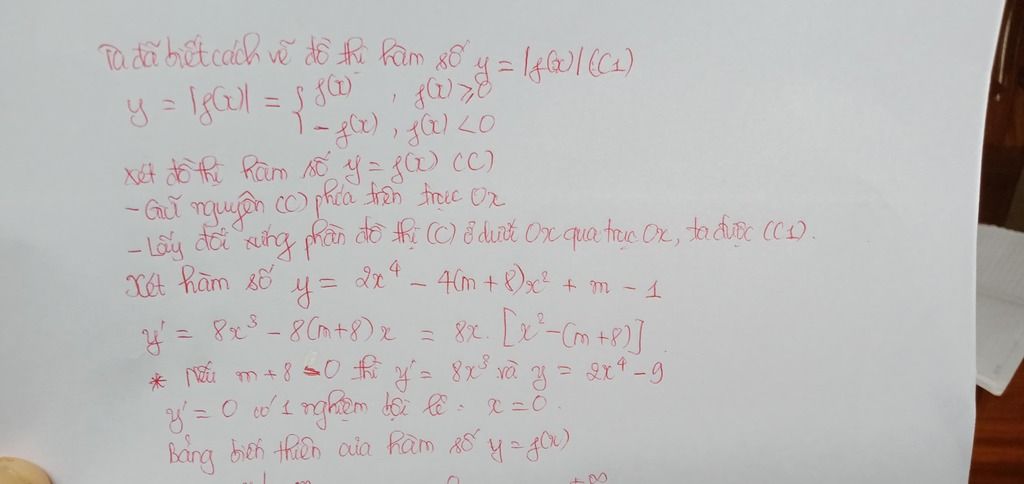 Ta đã biết cách vẽ đồ thị hàm số y = |f(x)| (C1)
y = |f(x)| = { f(x) , f(x) ≥ 0
- f(x) , f(x) < 0
Xét đồ thị hàm số y = f(x) (C)
- Giữ nguyên (C) phía trên trục Ox
- Lấy đối xứng phần đồ thị (C) ở dưới Ox qua trục Ox, ta được (C1).
Xét hàm số y = 2x⁴ - 4(m + 8)x² + m - 1
y' = 8x³ - 8(m+8)x = 8x. [x² - (m + 8)]
* Nếu m + 8 = 0 thì y' = 8x³ và y = 2x⁴ - 9
y' = 0 có 1 nghiệm bội lẻ . x = 0 .
Bảng biến thiên của hàm số y = f(x)